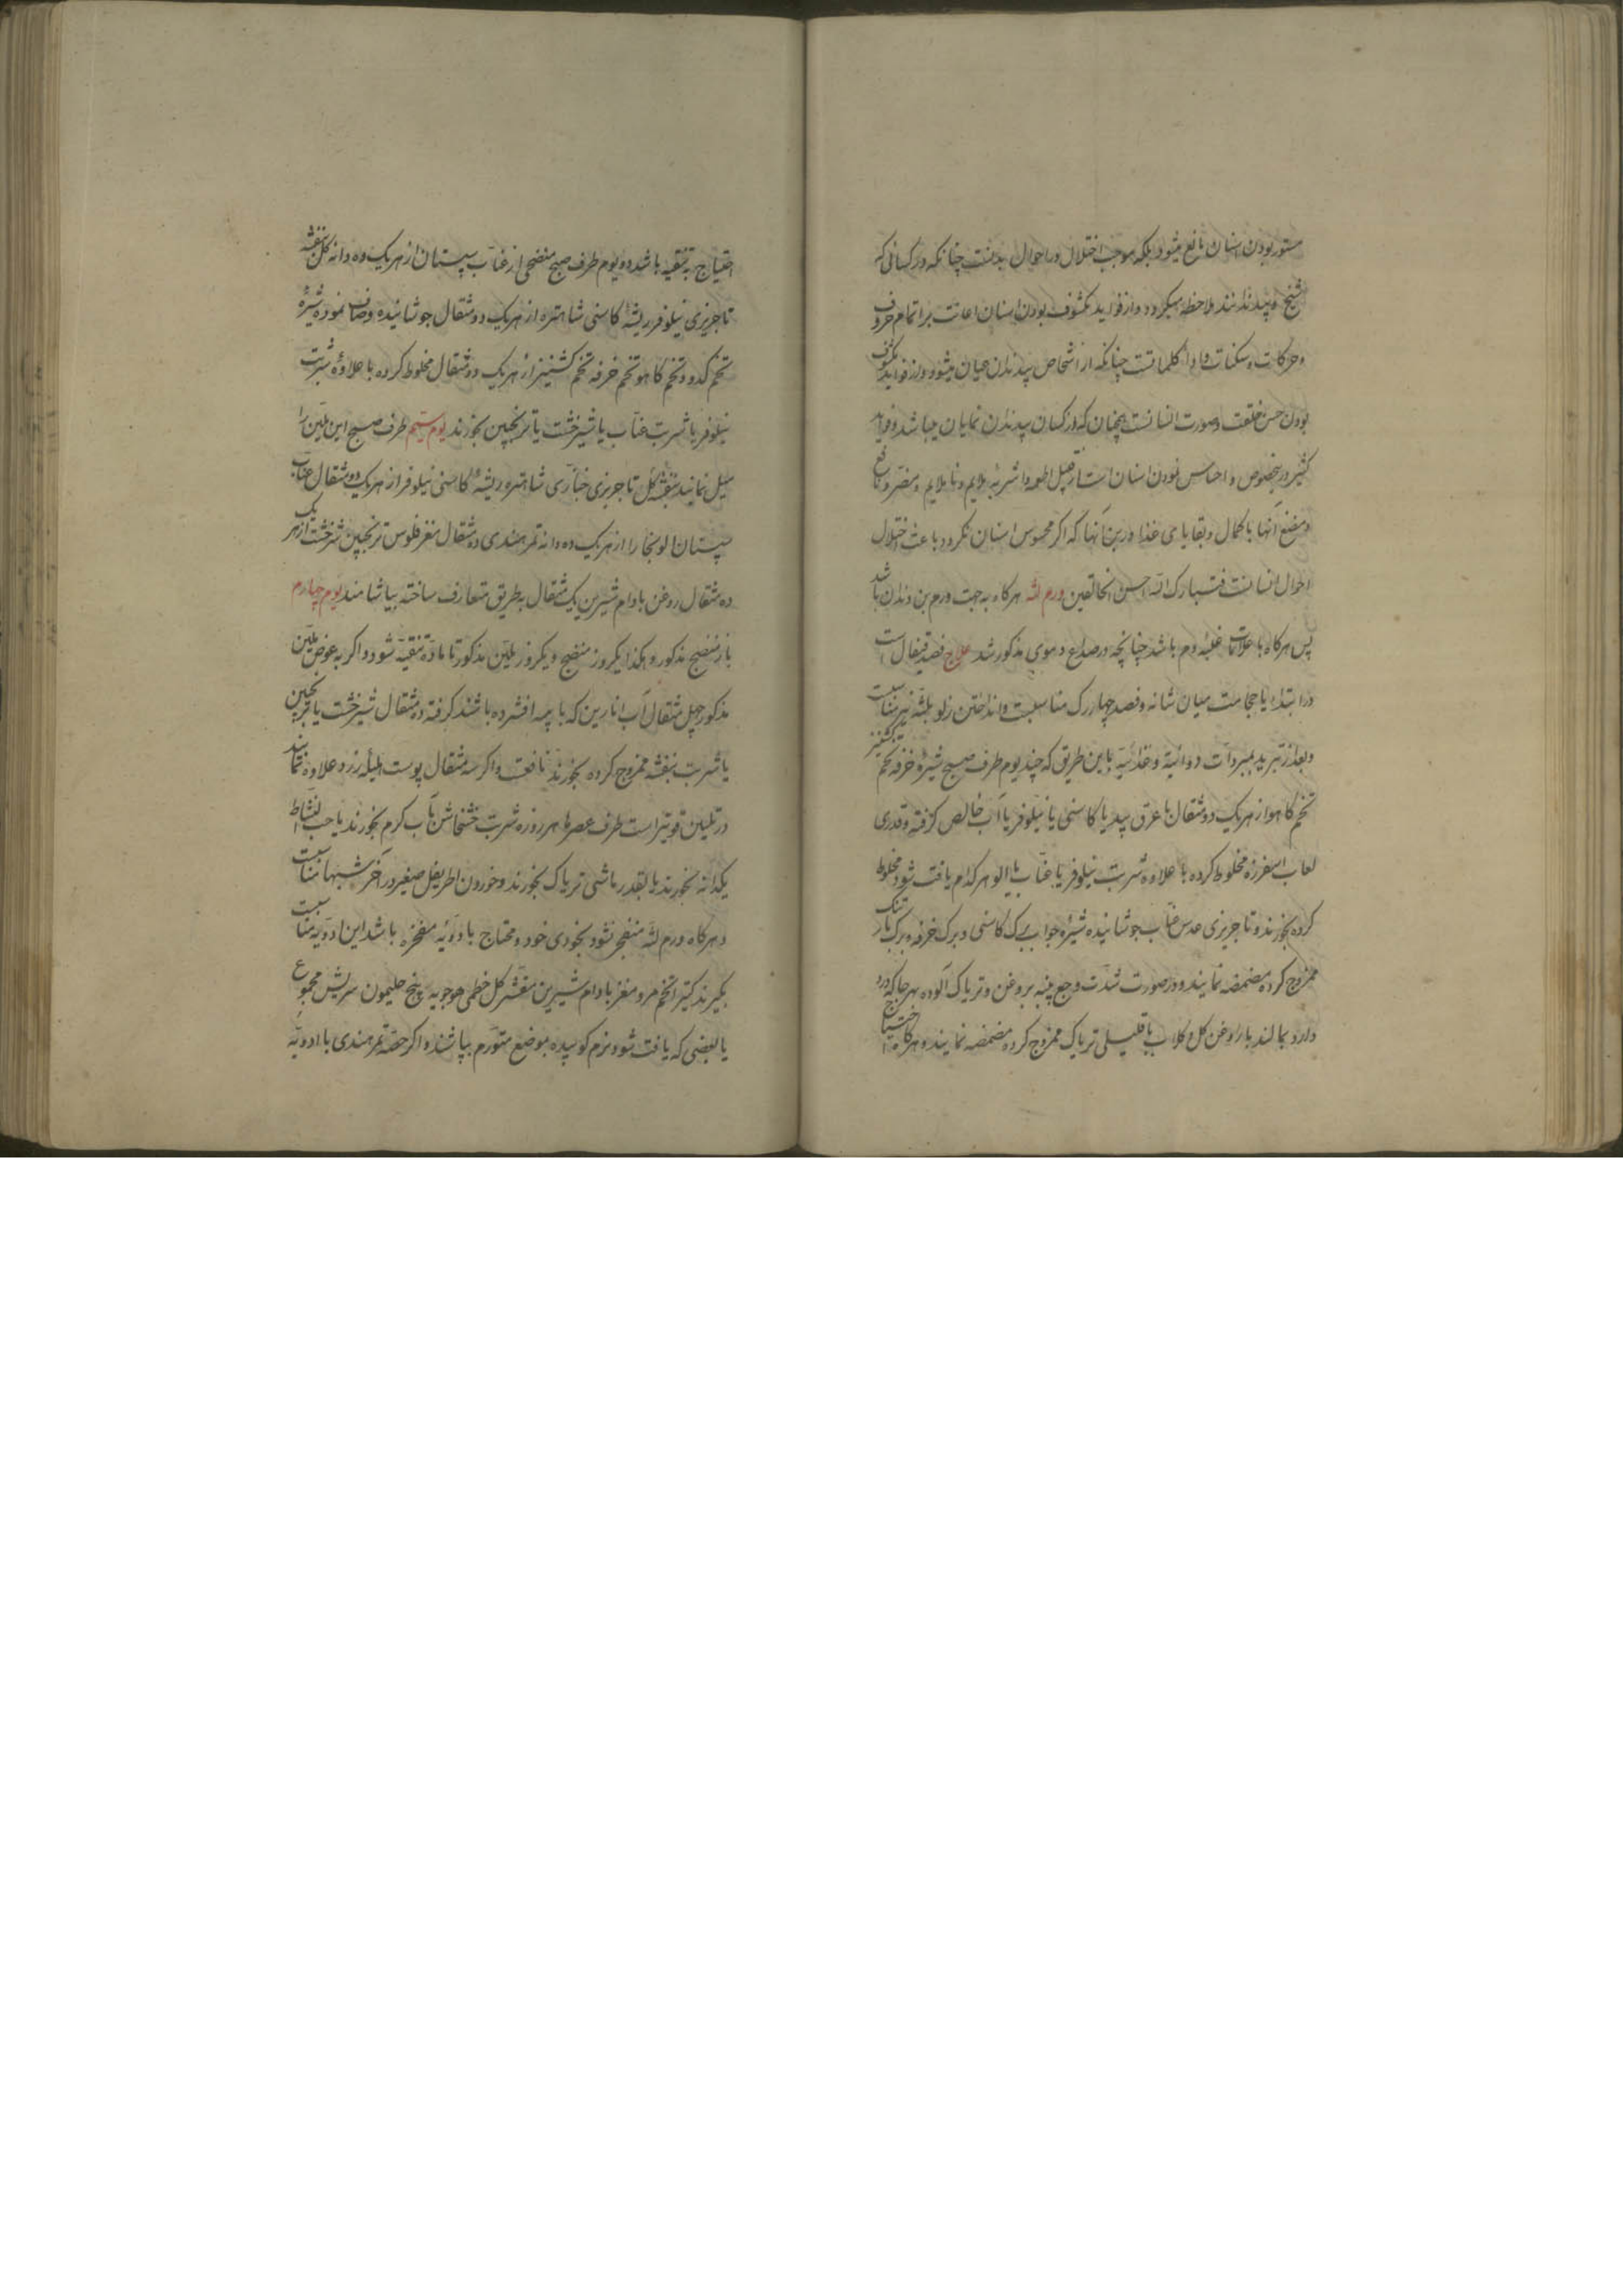 مستور بودن اسنان مانع میشود بلکه موجب اختلال در احوال بدنست چنانکه در کسانی که
شیخ و بیدندانند ملاحظه میکردد و از فواید مکشوف بودن اسنان اعانت بر اتمام حروف
و حرکات و سکنات و ادا کلماتست چنانکه از اشخاص بیدندان عیان میشود و از فواید مکشوف
بودن حسن خلقت و صورت انسانست همچنان که در کسان بیدندان نمایان میباشد و فواید
کثیر درینخصوص و احساس نمودن اسنان است از قبیل اطعمه و اشربه ملایم و نا ملایم و مضر و نافع
و مضغ آنها با کمال و بقایای غذا در بن آنها که اکر محسوس اسنان نکردد باعث اختلال
احوال انسانست فتبارک الله احسن الخالقین ورم لثه هرکاه به جهت ورم بن دندان باشد
پس هرکاه با علامات غلبه دم باشد چنانچه در صداع دموی مذکور شد علاج فصد قیفال است
در ابتدا یا حجامت میان شانه و فصد چهار رک مناسبست و انداختن زلو بلثه نیز مناسبست
و بعد از تبرید بمبردات دوائیه و غذائیه باین طریق که چند یوم طرف صبح شیره خرفه تخم کشنیز
تخم کاهو از هر یک دو مثقال با عرق بید یا کاسنی یا نیلوفر یا آب خالص کرفته و قدری
لعاب اسفرزه مخلوط کرده با علاوه شربت نیلوفر یا عناب یا الو هر کدام یافت شود مخلوط
کرده بخورند و تاجریزی عدس عناب جوشانیده شیره جو اب برک کاسنی و برک خرفه و برک بارتنک
ممزوج کرده مضمضه نمایند و در صورت شدت وجع پنبه بروغن و تریاک آلوده بهر جا که درد
دارد بمالند یا روغن کل و کلاب با قلیلی تریاک ممزوج کرده مضمضه نمایند و هرکاه احتیاج
احتیاج به تنقیه باشد دو یوم طرف صبح منضجی از عناب سپستان از هر یک ده دانه کل بنفشه
تاجریزی نیلوفر ریشه کاسنی شاهتره از هر یک دو مثقال جوشانیده و صاف نموده شیره
تخم کدو و تخم کاهو تخم خرفه تخم کشنیز از هر یک دو مثقال مخلوط کرده با علاوه شربت
نیلوفر یا شربت عناب یا شیرخشت یا ترنجبین بخورند یوم سیم طرف صبح این ملین را
میل نمایند بنفشه کل تاجریزی خبازی شاهتره ریشه کاسنی نیلوفر از هر یک دو مثقال عناب
سپستان الو بخارا از هر یک ده دانه تمر هندی ده مثقال مغز فلوس ترنجبین شیرخشت از هر یک
ده مثقال روغن بادام شیرین یک مثقال به طریق متعارف ساخته بیاشامند یوم چهارم
باز منضج مذکور و هکذا یکروز منضج و یکروز ملین مذکور تا ماده تنقیه شود و اکر به عوض ملین
مذکور چهل مثقال آب انارین که با پیه افشرده باشند کرفته ده مثقال شیرخشت یا ترنجبین
یا شربت بنفشه ممزوج کرده بخورند نافعست و اکر سه مثقال پوست هلیله زرد علاوه نمایند
در تلیین قویتر است طرف عصرها هر روزه شربت خشخاش بآب کرم بخورند یا حب النشاط
یکدانه بخورند یا بقدر ماشی تریاک بخورند و خوردن اطریفل صغیر در آخر شبها مناسبست
و هرکاه ورم لثه منفجر نشود بخودی خود و محتاج بادویه مفجره باشد این ادویه مناسبست
بکیرند کتیرا تخم مرو مغز بادام شیرین مقشر کل خطمی هوجوبه پنج حلیمون سریش مجموع
یا بعضی که یافت شود نرم کوبیده بموضع متورم بپاشند و اکر حصه تمر هندی با ادویه